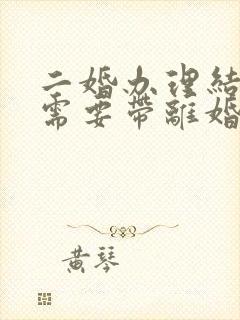 二婚办理结
需要带离婚
黄琴